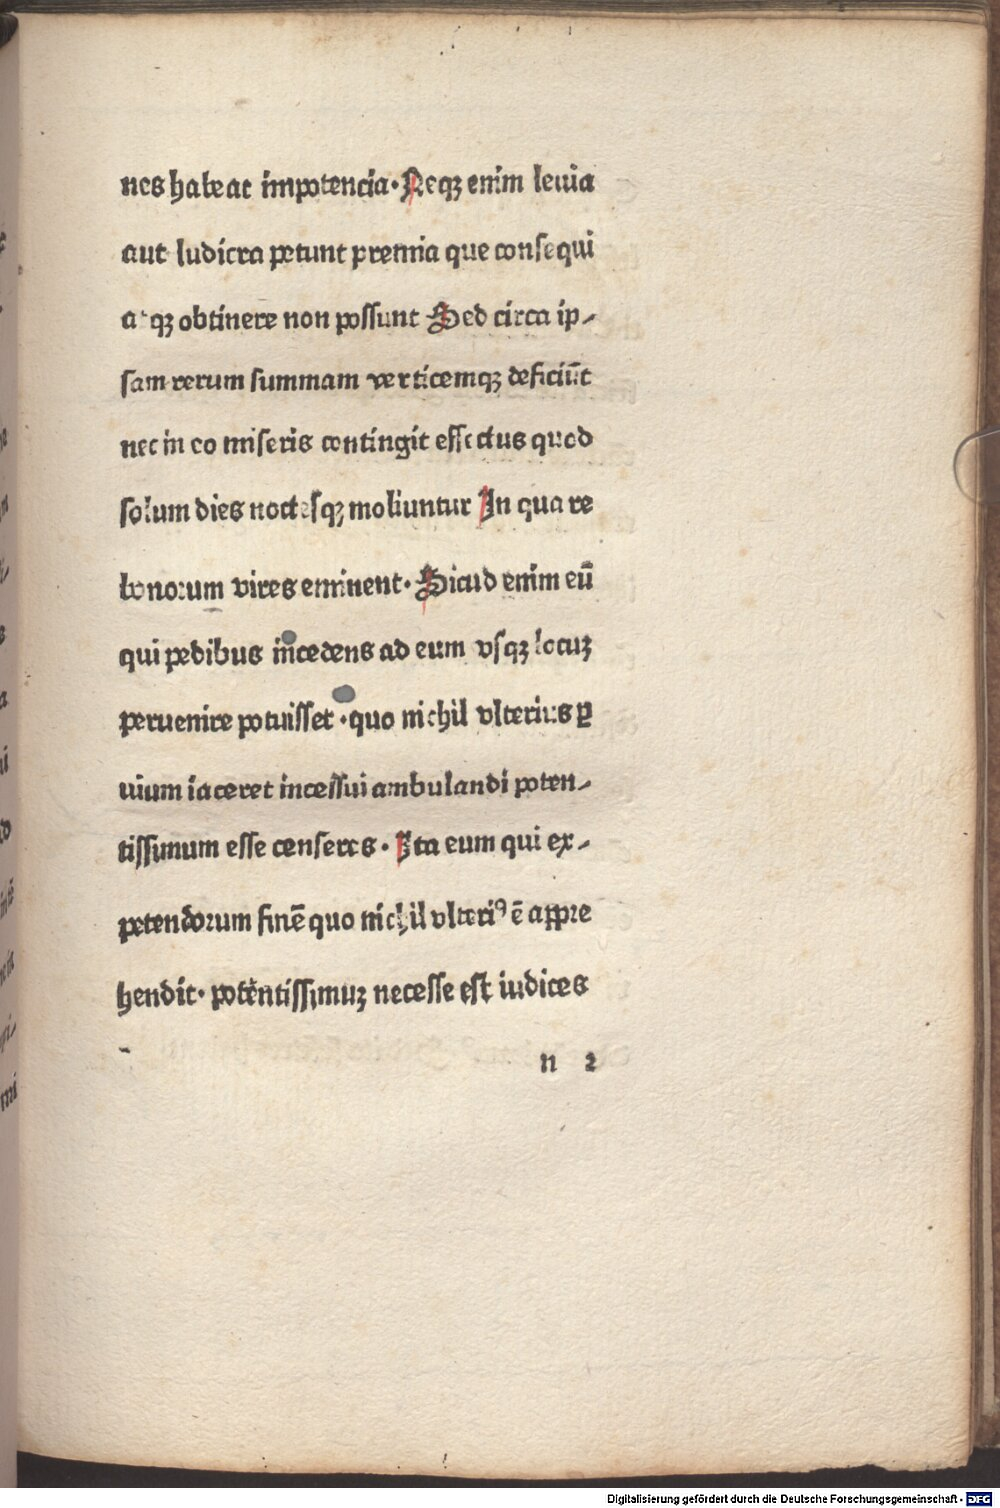 nes habeat impotencia · Neqꝫ enim leuia
aut ludicra petunt premia que consequi
atqꝫ obtinere non possunt Sed circa ip-
sam rerum summam verticemqꝫ deficiūt
nec in eo miseris contingit effectus quod
solum dies noctesqꝫ moliuntur In qua re
bonorum vires eminent · Sicud enim eū
qui pedibus incedens ad eum vsqꝫ locuꝫ
peruenire potuisset · quo nichil vlterius ꝑ
uium iaceret incessui ambulandi poten-
tissimum esse censeres · Ita eum qui ex-
petendorum finē quo nichil vlteriꝰ ē appre
hendit · potentissimuꝫ necesse est iudices
n 2
Digitalisierung gefördert durch die Deutsche Forschungsgemeinschaft - DFG